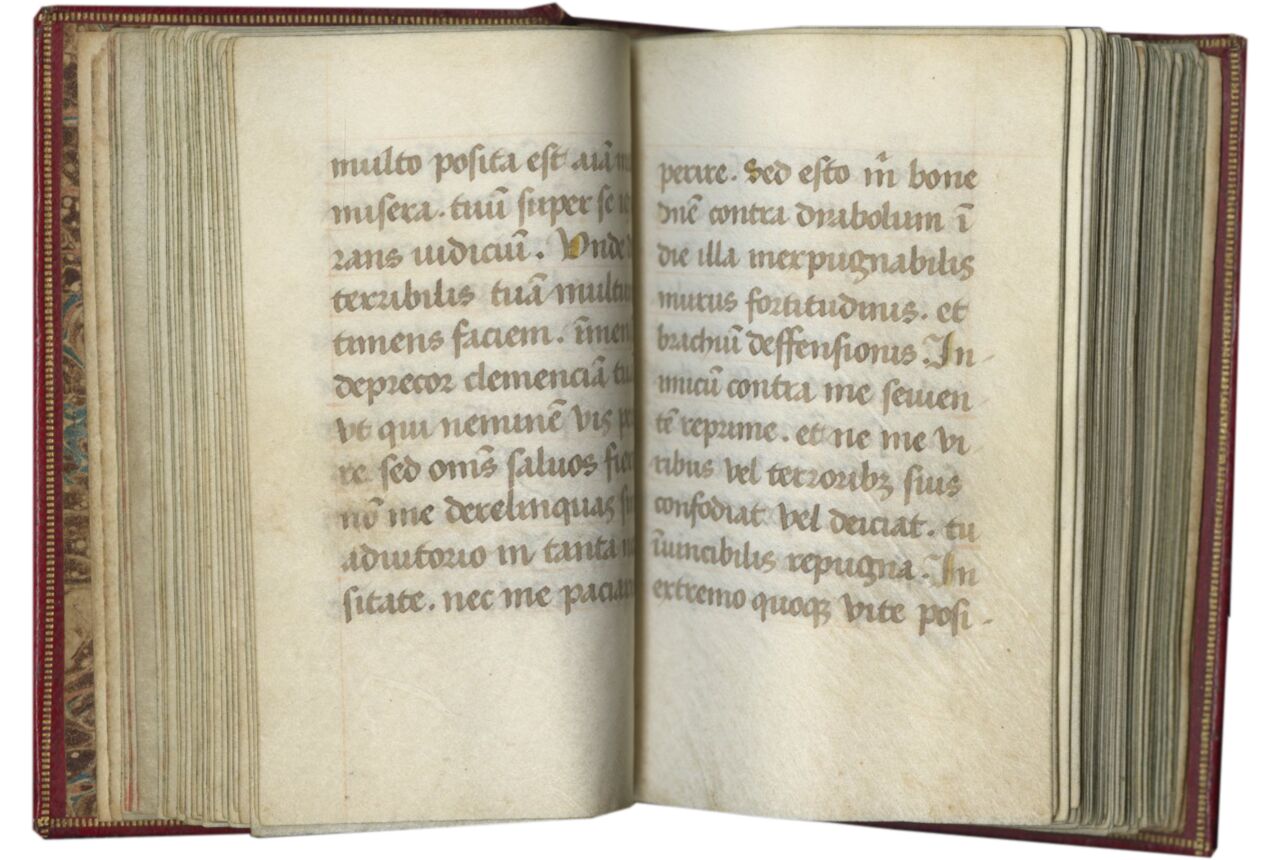 multo posita est aiã
misera. tuũ super se
rans iudiciũ. Unde
terribilis tuã multu
timens faciem. ĩmen
deprecor clemenciã tu
vt qui neminẽ vis
re sed om̃s saluos fie
nõ me derelinquas
adiutorio in tanta
sitate. nec me paciar
perire. Sed esto m̃ bone
dñe contra diabolum ĩ
die illa inexpugnabilis
murus fortitudinis. et
brachiũ deffensionis In-
imicũ contra me seuien
tẽ reprime. et ne me vi
ribus vel terroribꝫ suis
confodiat vel deiciat. tu
ĩuincibilis repugna. In
extremo quoqꝫ vite posi-